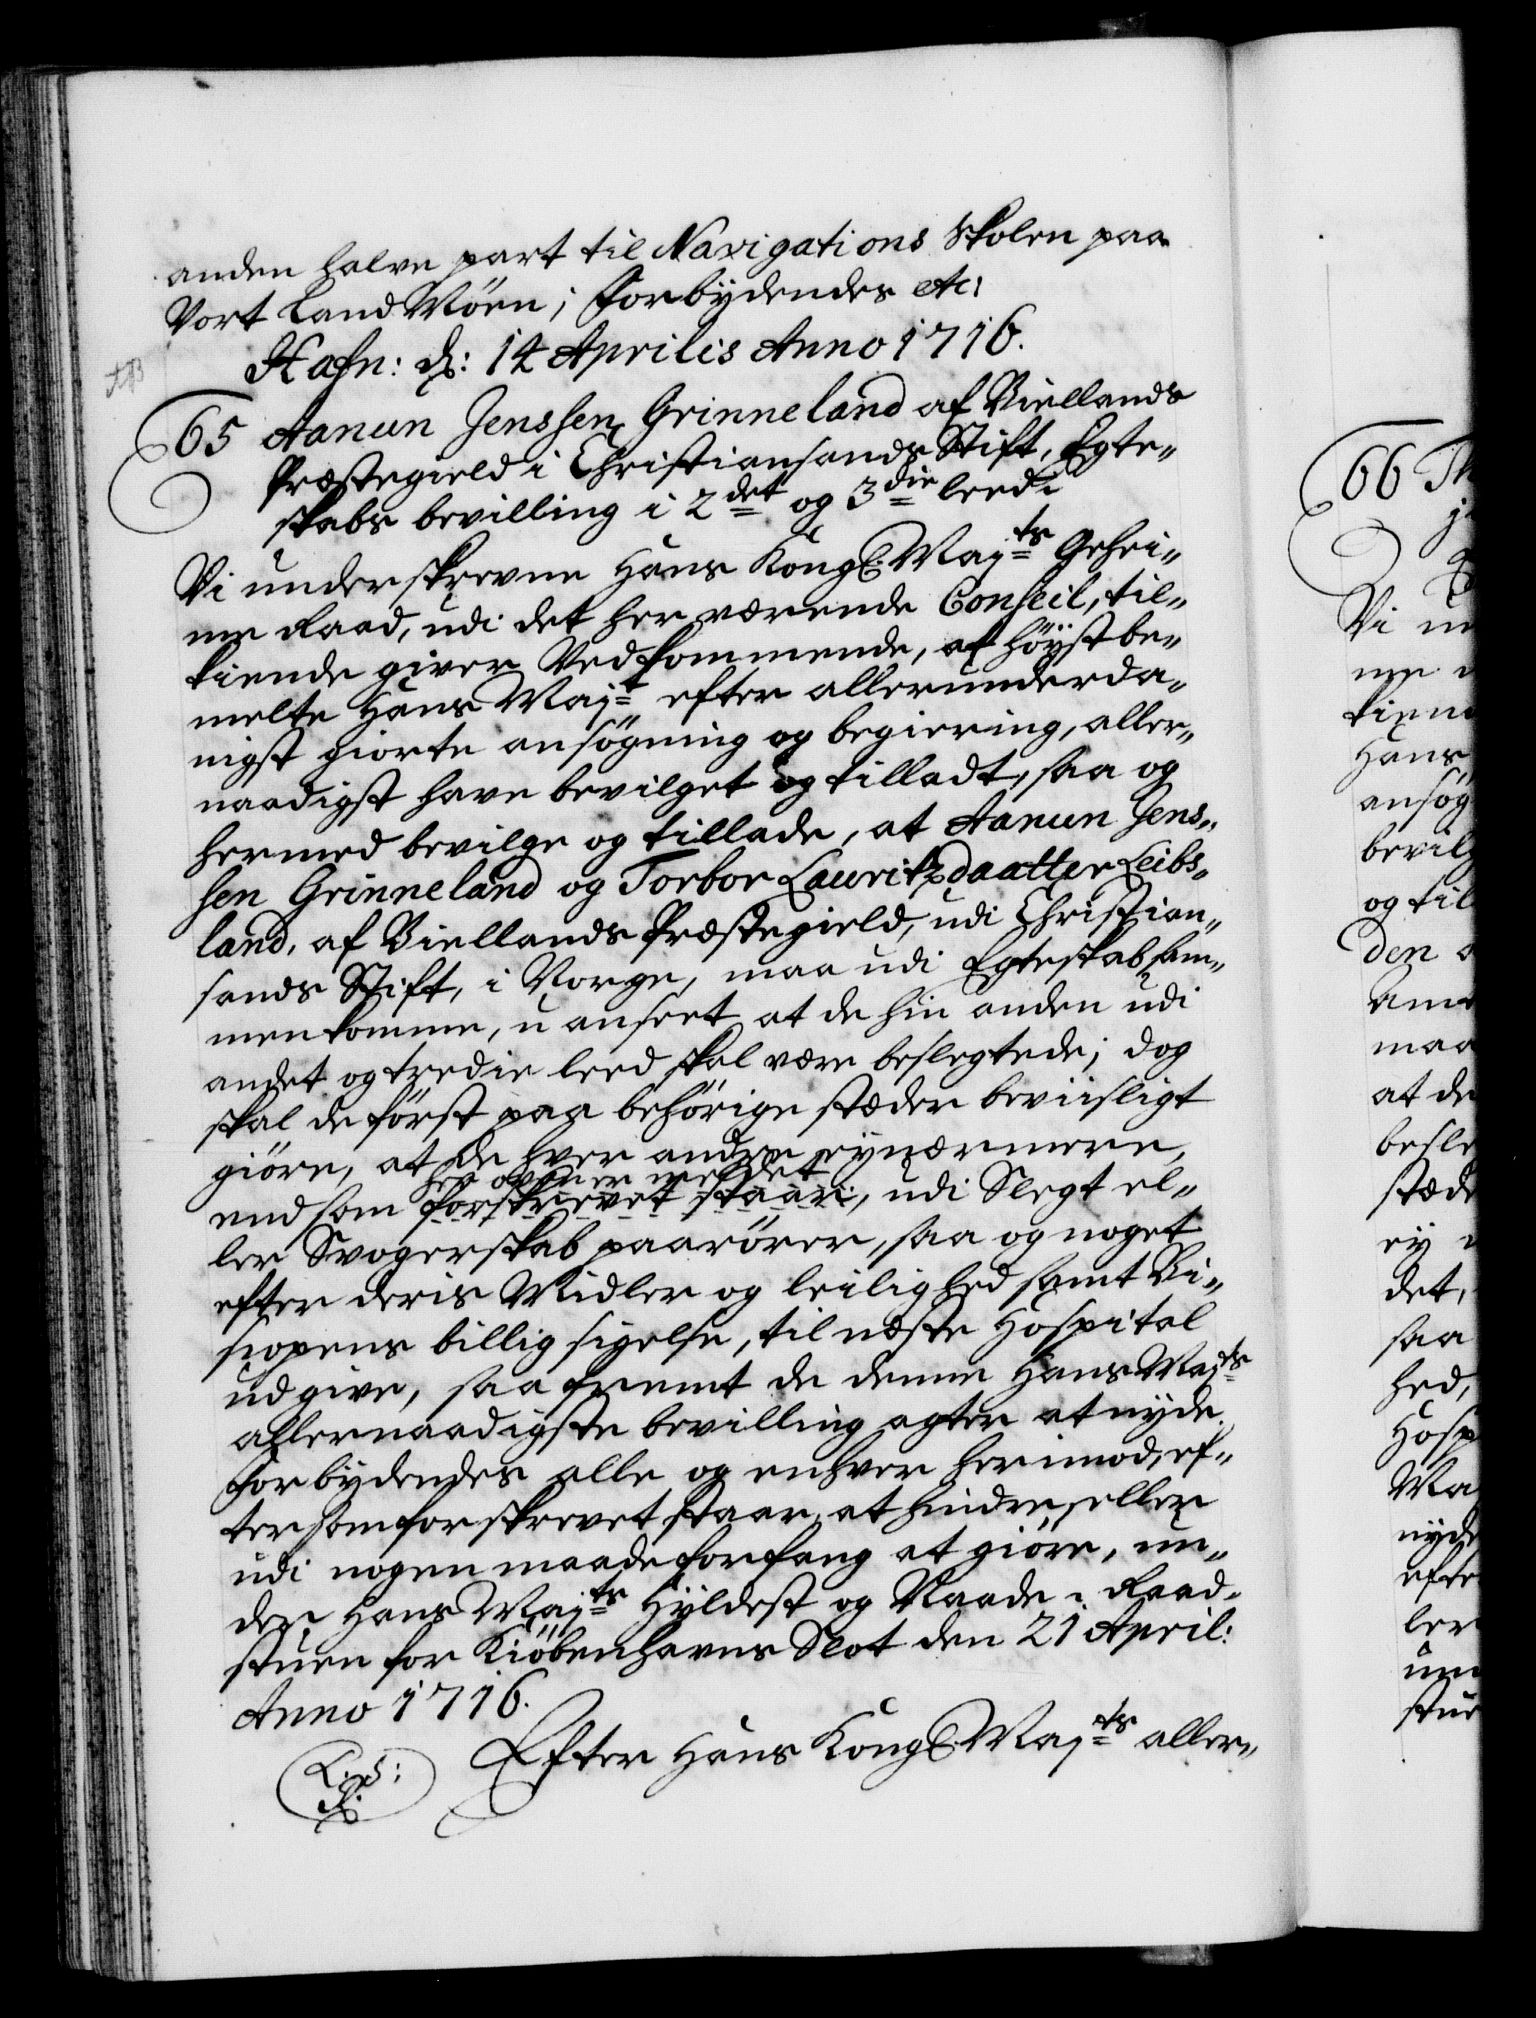 anden halve part til Navigations Skolen paa
Vort Land Møen; Forbÿdendes etc:
Hafn: d: 14 Aprilis Anno 1716.
65 Aanun Jenssen Grinneland af Biellands
Præstegield i Christiansands Stift, Egte-
skabs bevilling i 2det og 3die leed:
Vi underskrevne Hans Kongl: Majts Gehei-
me Raad, udi det her værende Conseil, til-
kiende giver Vedkommende, at høÿstbe-
melte Hans Majt efter allerunderda-
nigst giorte ansøgning og begiering, aller-
naadigst have bevilget og tilladt, saa og
hermed bevilge og tillade, at Aanun Jens-
sen Grinneland og Torbor Lauritzdaatter Leibs-
land, af Biellands Præstegield, udi Christian-
sands Stift, i Norge, maa udi Egteskab sam-
menkomme, uanseet at de hin anden udi
andet og tredie leed skal være beslegtede; dog
skal de først paa behørige stæder beviisligt
giøre, at de hver andre eÿ nærmere,
her oven er meldet
end som forskrevet staar, udi Slegt el-
ler Svogerskab paarører, saa og noget
efter deris Midler og leilighed samt Bi-
spens billig sigelse, til neste Hospital
udgive, saa fremt de denne Hans Majts
allernaadigste bevilling agter at nÿde.
Forbÿdendes alle og enhver herimod, ef-
tersom forskrevet staar, at hindre eller
udi nogen maade forfang at giøre, un-
der Hans Majts Hÿldest og Naade. Raad-
stuen for Kiøbenhavns Slot den 21 April:
Anno 1716.
L. S:
Efter Hans Kongl: Majts aller-
66 Th
Vi un
me
kiend
Hans
ansøg
bevilg
og til
den
maa
at de
besle
stæde
eÿ
det,
saa
hed,
Hosp
Ma
nÿde
efte
ler
un
stue